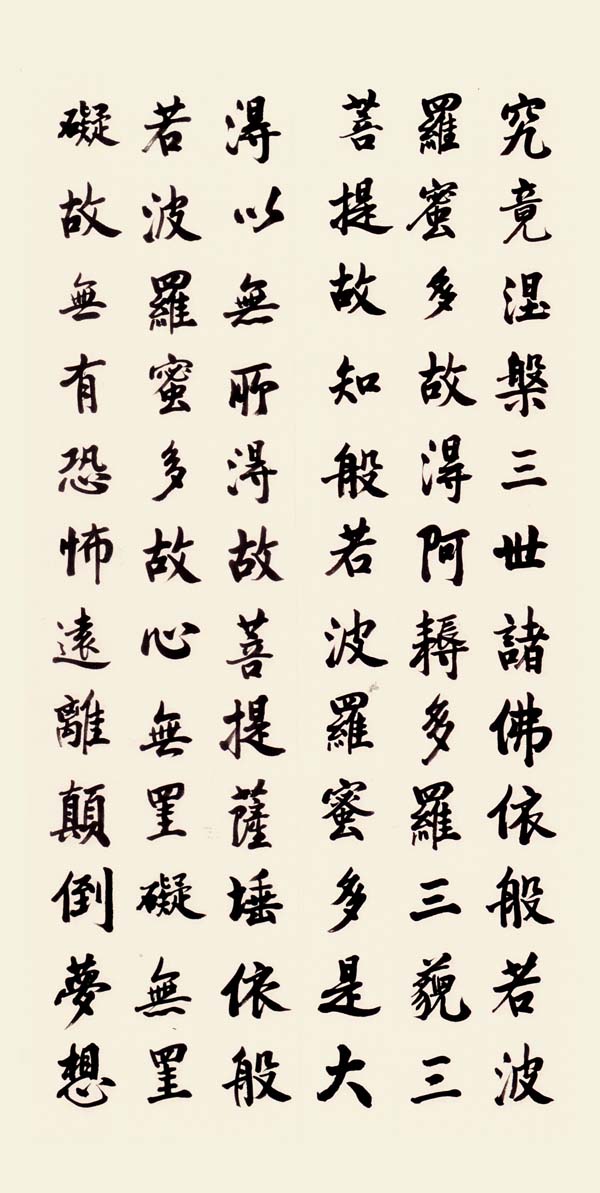 究竟涅槃三世諸佛依般若波
羅蜜多故得阿耨多羅三藐三
菩提故知般若波羅蜜多是大
得以無所得故菩提薩埵依般
若波羅蜜多故心無罣礙無罣
礙故無有恐怖遠離顛倒夢想